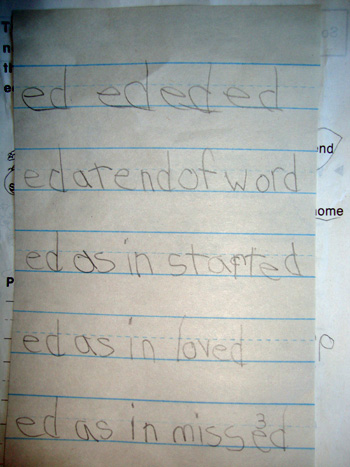 ed ed ed ed
ed at end of word
ed as in started
ed as in loved
ed as in missed
3
nd
ome